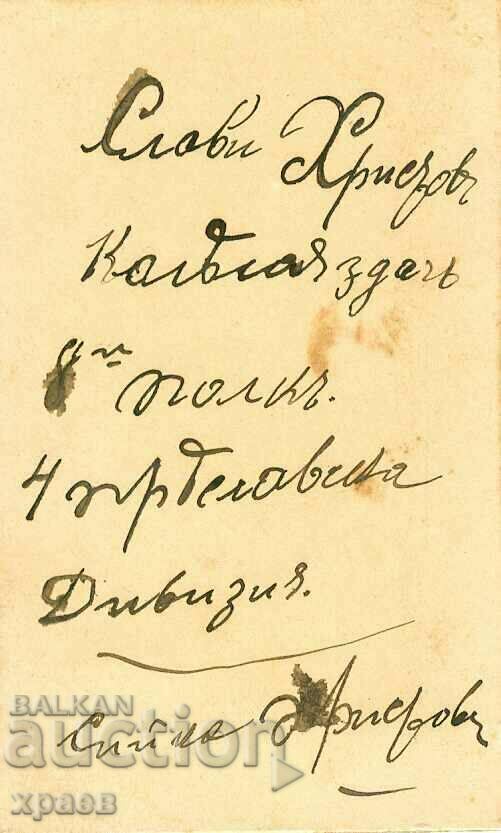 Слави Христовъ
8ми полкъ.
4 прѣславска
Дивизия.
Сийка Христовъ
BALKAN
auction
храев